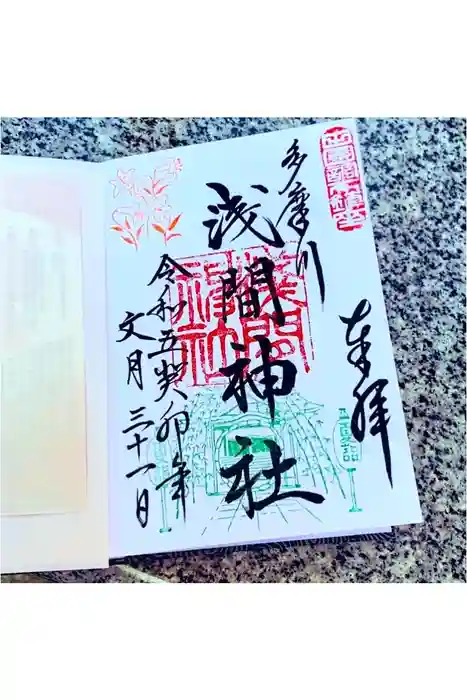 奉拝
多摩川
浅間神社
浅間神社
令和五癸卯年
文月三十一日